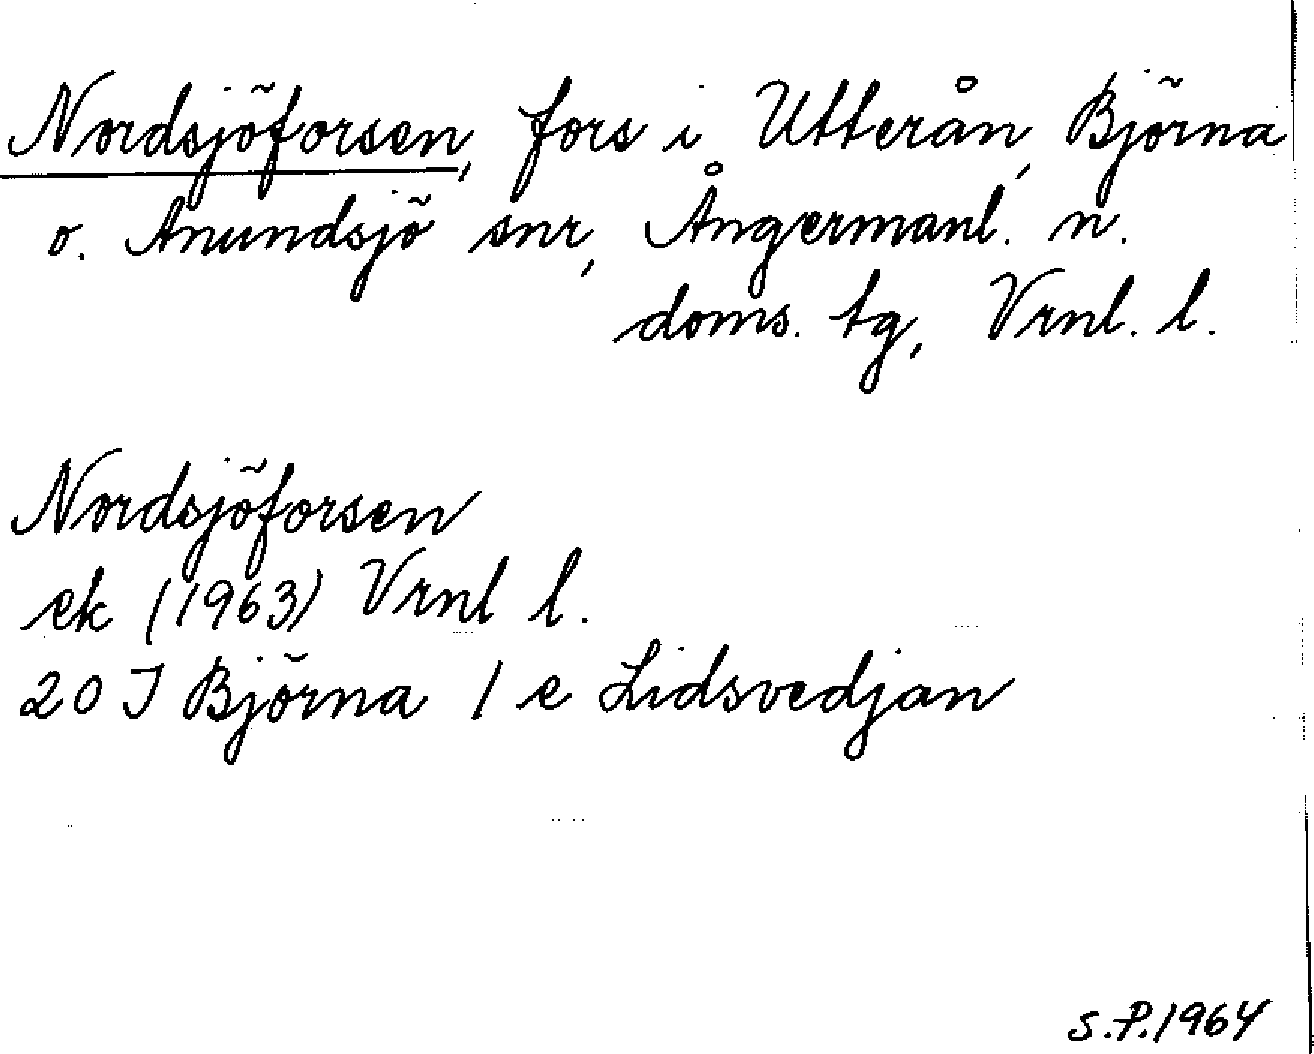 Nordsjöforsen, fors i Utterån, Björna
o. Anundsjö snr, Ångermanl. n.
doms. tg, Vrnl. l.
Nordsjöforsen
ek (1963) Vrnl l.
20 J Björna / e Lidsvedjan
S.P. 1964